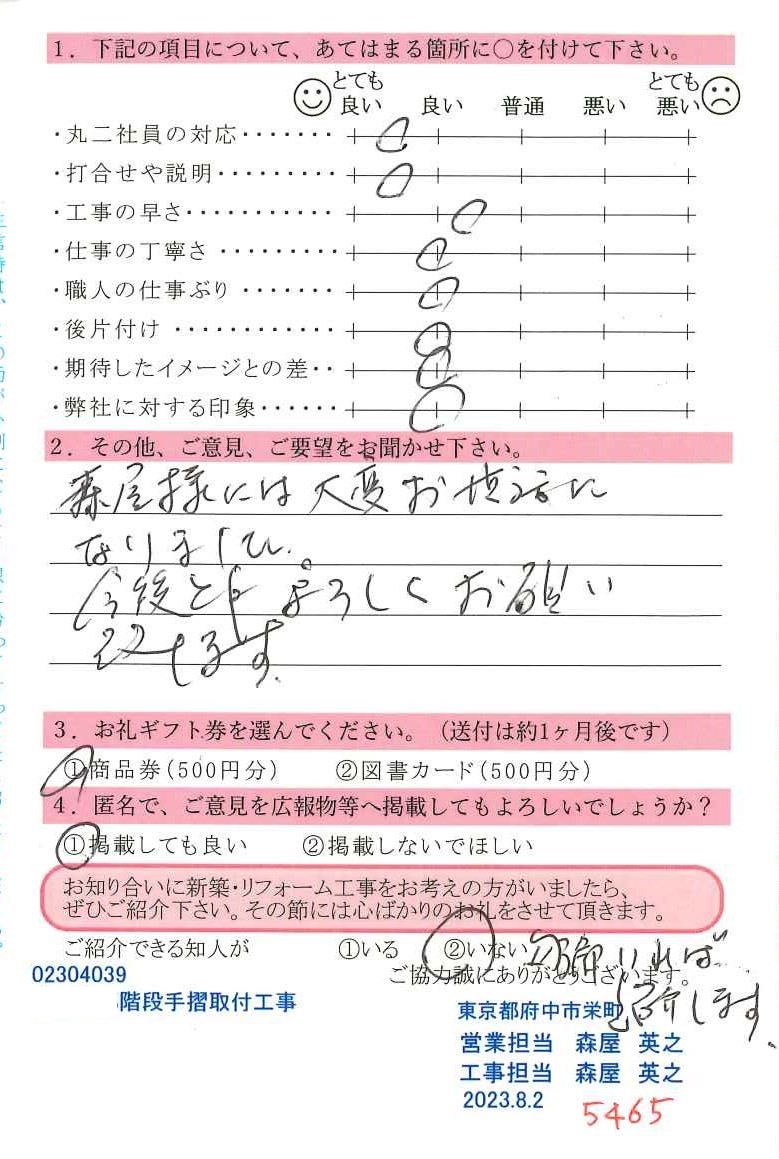 1. 下記の項目について、あてはまる箇所に○を付けて下さい。
とても良い 良い 普通 悪い とても悪い
・丸二社員の対応・・・・・・・
・打合せや説明・・・・・・・・・
・工事の早さ・・・・・・・・・・・
・仕事の丁寧さ・・・・・・・・・
・職人の仕事ぶり・・・・・・・
・後片付け・・・・・・・・・・・・
・期待したイメージとの差・・
・弊社に対する印象・・・・・・
2. その他、ご意見、ご要望をお聞かせ下さい。
森屋様には大変お世話に
なりました。
今後ともよろしくお願い
致します。
3. お礼ギフト券を選んでください。(送付は約1ヶ月後です)
①商品券(500円分) ②図書カード(500円分)
4. 匿名で、ご意見を広報物等へ掲載してもよろしいでしょうか?
①掲載しても良い ②掲載しないでほしい
お知り合いに新築・リフォーム工事をお考えの方がいましたら、
ぜひご紹介下さい。その節には心ばかりのお礼をさせて頂きます。
ご紹介できる知人が ①いる ②いない
いれば
紹介します。
ご協力誠にありがとうございます。
02304039
階段手摺取付工事
東京都府中市栄町
営業担当 森屋 英之
工事担当 森屋 英之
2023.8.2
5465